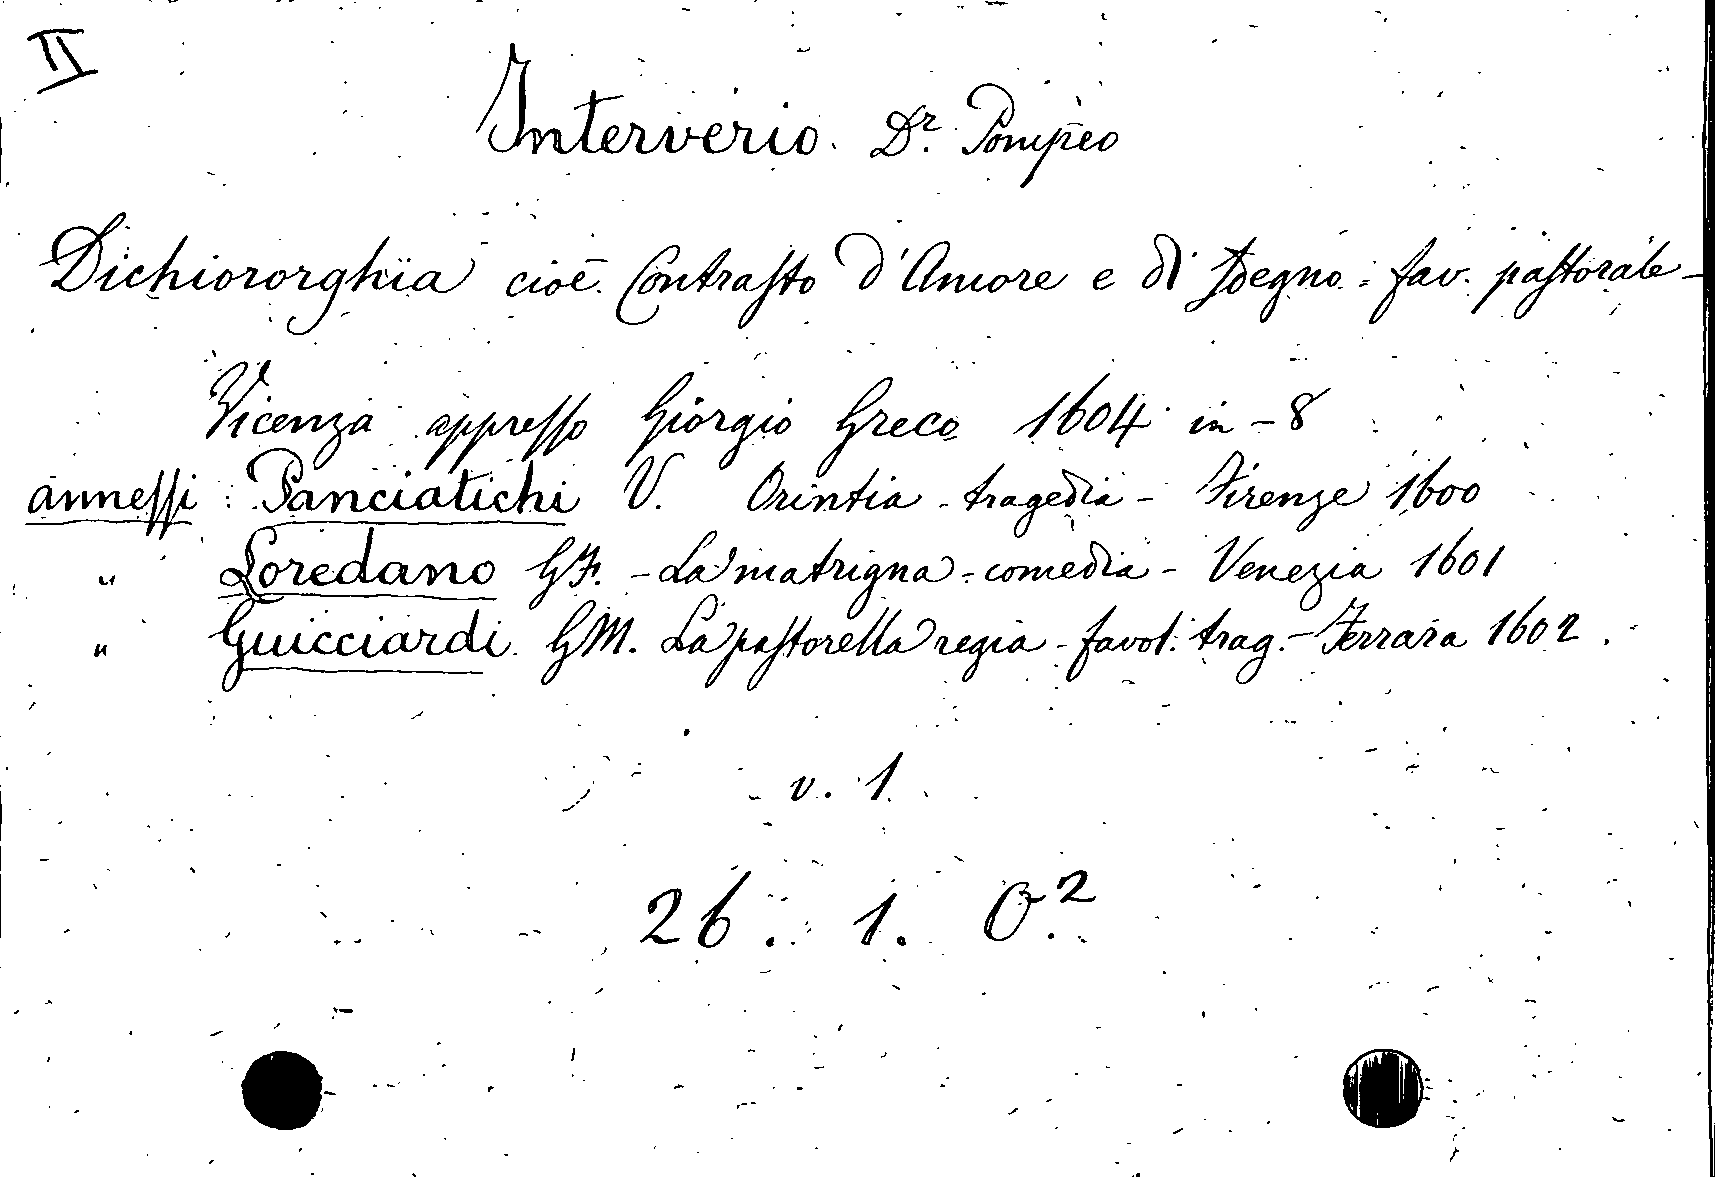 II
Interverio. Dr. Pompeo
Dichiororghia cioè Contrasto d'Amore e di sdegno - fav. pastorale -
Vicenza appresso Giorgio Greco 1604 in - 8
annessi : Panciatichi V. Orintia - tragedia - Firenze 1600
" Loredano GF. - La matrigna - comedia - Venezia 1601
" Guicciardi GM. La pastorella regia - favol. trag. - Ferrara 1602.
v. 1
26. 1. O.2